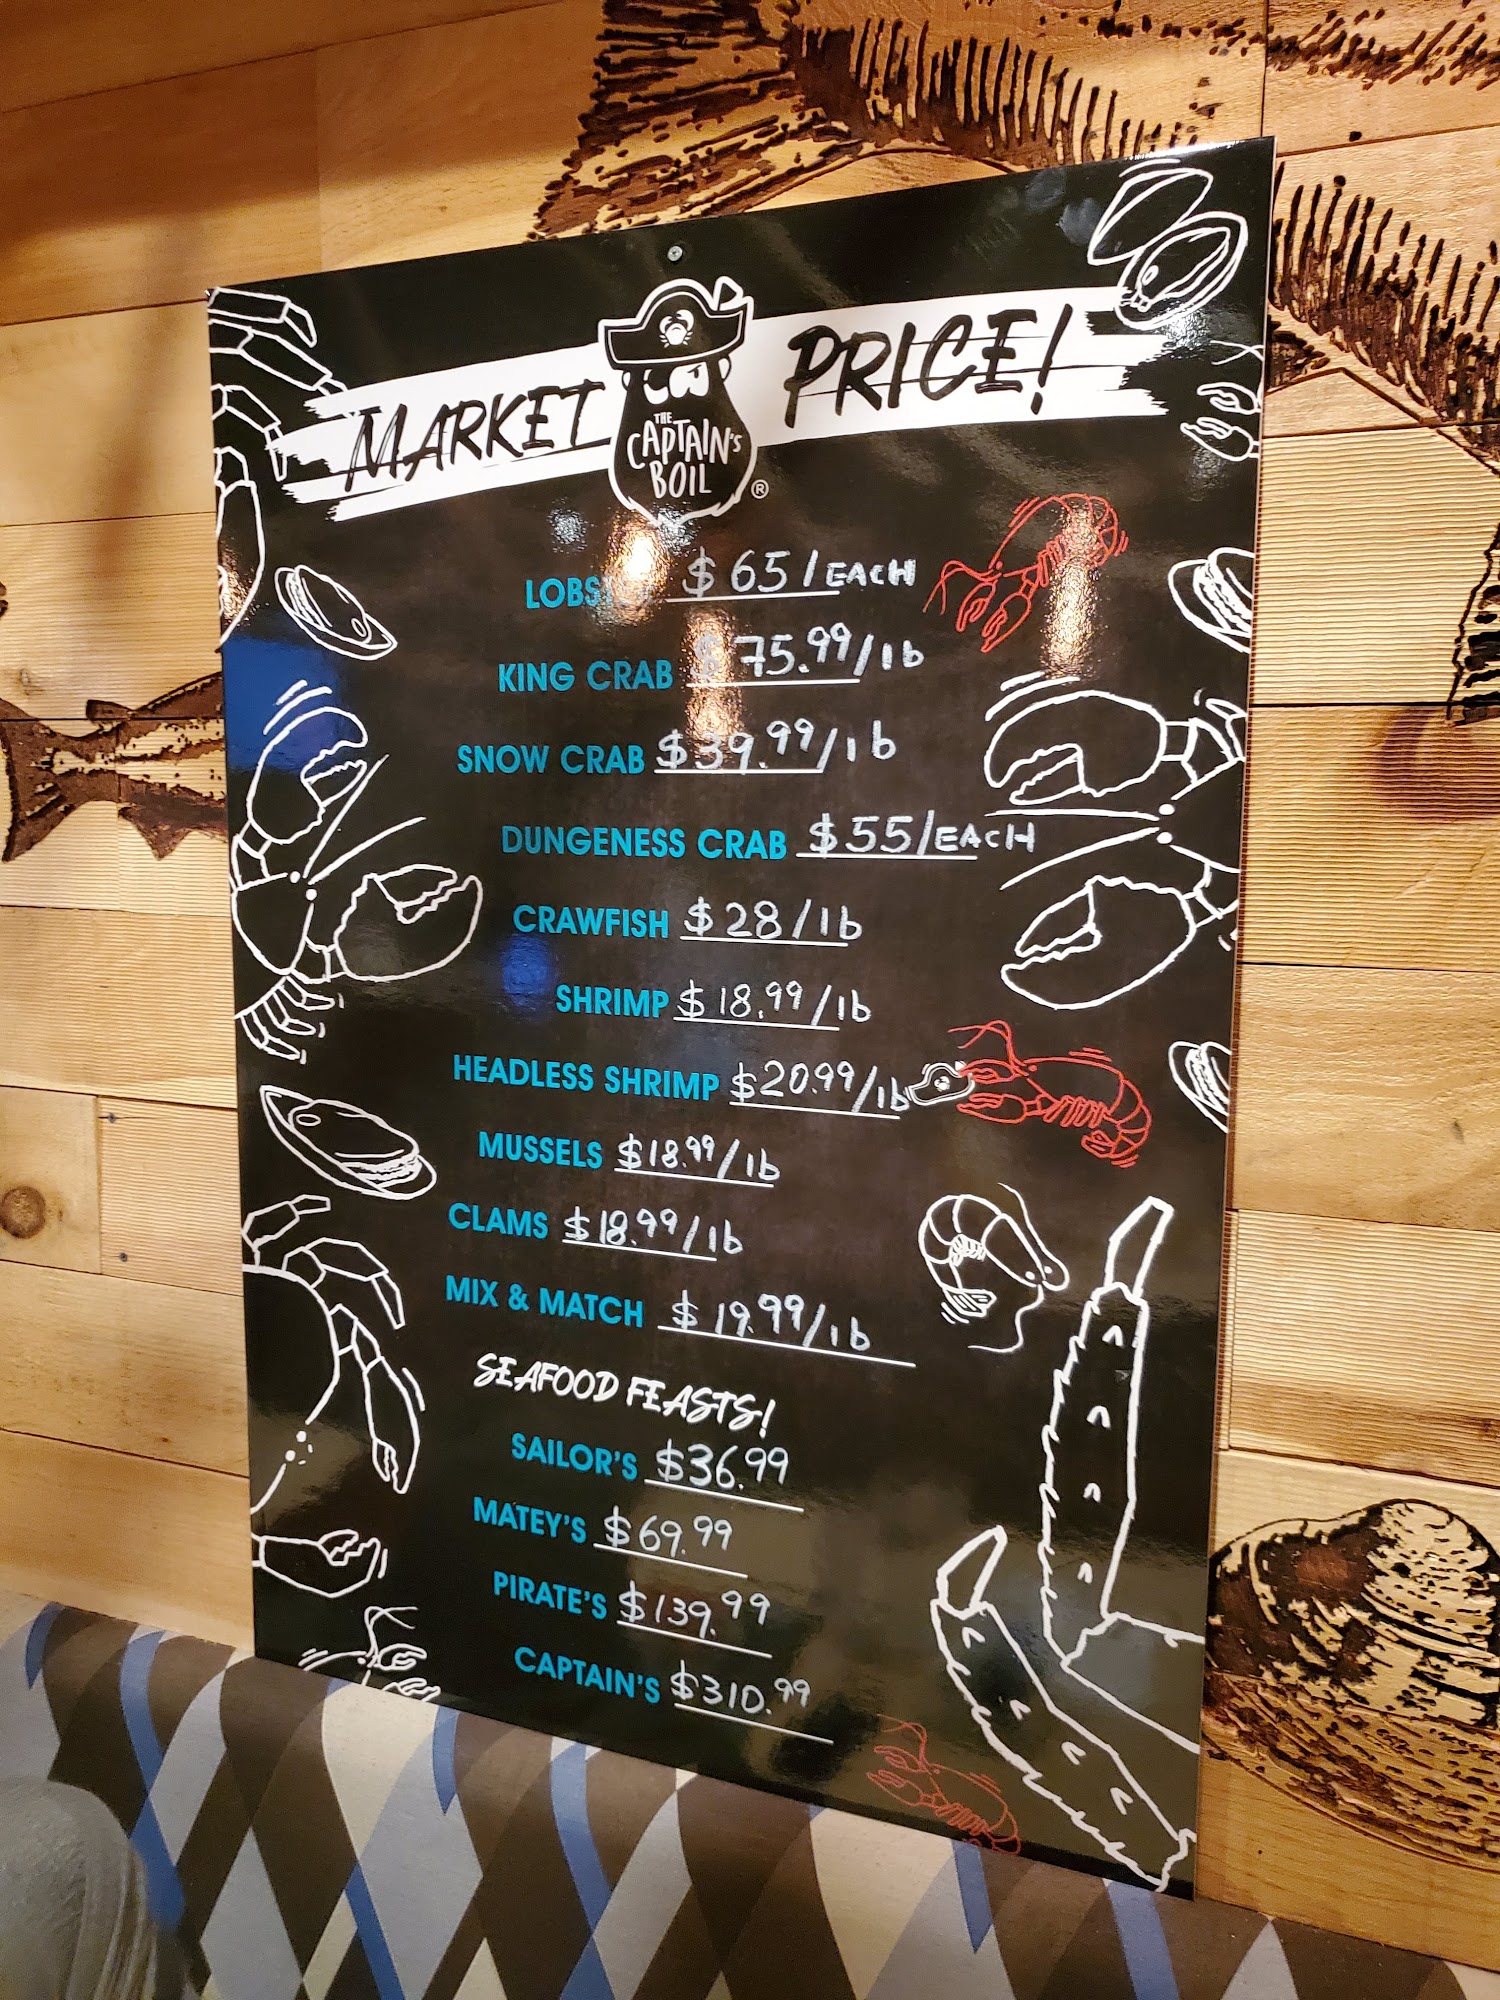 MARKET PRICE!
THE
CAPTAIN'S
BOIL ®
LOBSTER $65/EACH
KING CRAB $75.99/lb
SNOW CRAB $39.99/lb
DUNGENESS CRAB $55/EACH
CRAWFISH $28/lb
SHRIMP $18.99/lb
HEADLESS SHRIMP $20.99/lb
MUSSELS $18.99/lb
CLAMS $18.99/lb
MIX & MATCH $19.99/lb
SEAFOOD FEASTS!
SAILOR'S $36.99
MATEY'S $69.99
PIRATE'S $139.99
CAPTAIN'S $310.99